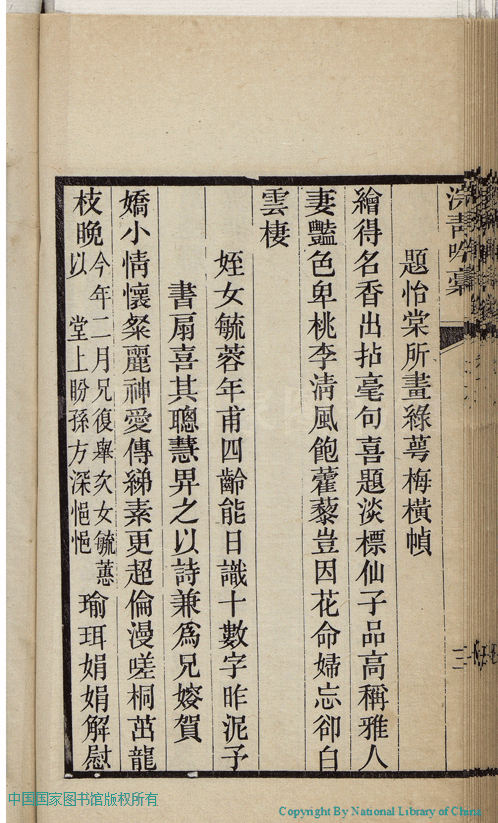 題怡棠所畫綠萼梅橫幀
繪得名香出拈毫句喜題淡標仙子品高稱雅人
妻豔色卑桃李淸風飽藿藜豈因花命婦忘卻白
雲棲
姪女毓蓉年甫四齡能日識十數字昨泥予
書扇喜其聰慧畀之以詩兼爲兄嫂賀
嬌小情懷粲麗神愛傳綈素更超倫漫嗟桐茁龍
枝晚今年二月兄復舉次女毓蕙
以 堂上盼孫方深悒悒
瑜珥娟娟解慰
吟藁
三
中国国家图书馆版权所有
Copyright By National Library of China